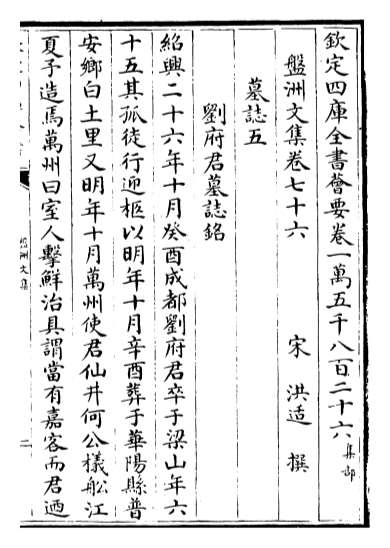 欽定四庫全書薈要卷一萬五千八百二十六集部
盤洲文集卷七十六
宋 洪适 撰
墓誌五
劉府君墓誌銘
紹興二十六年十月癸酉成都劉府君卒于梁山年六
十五其孤徒行迎柩以明年十月辛酉葬于華陽縣普
安鄉白土里又明年十月萬州使君仙井何公檥舩江
夏予造焉萬州曰室人擊鮮治具謂當有嘉客而君迺
盤洲文集